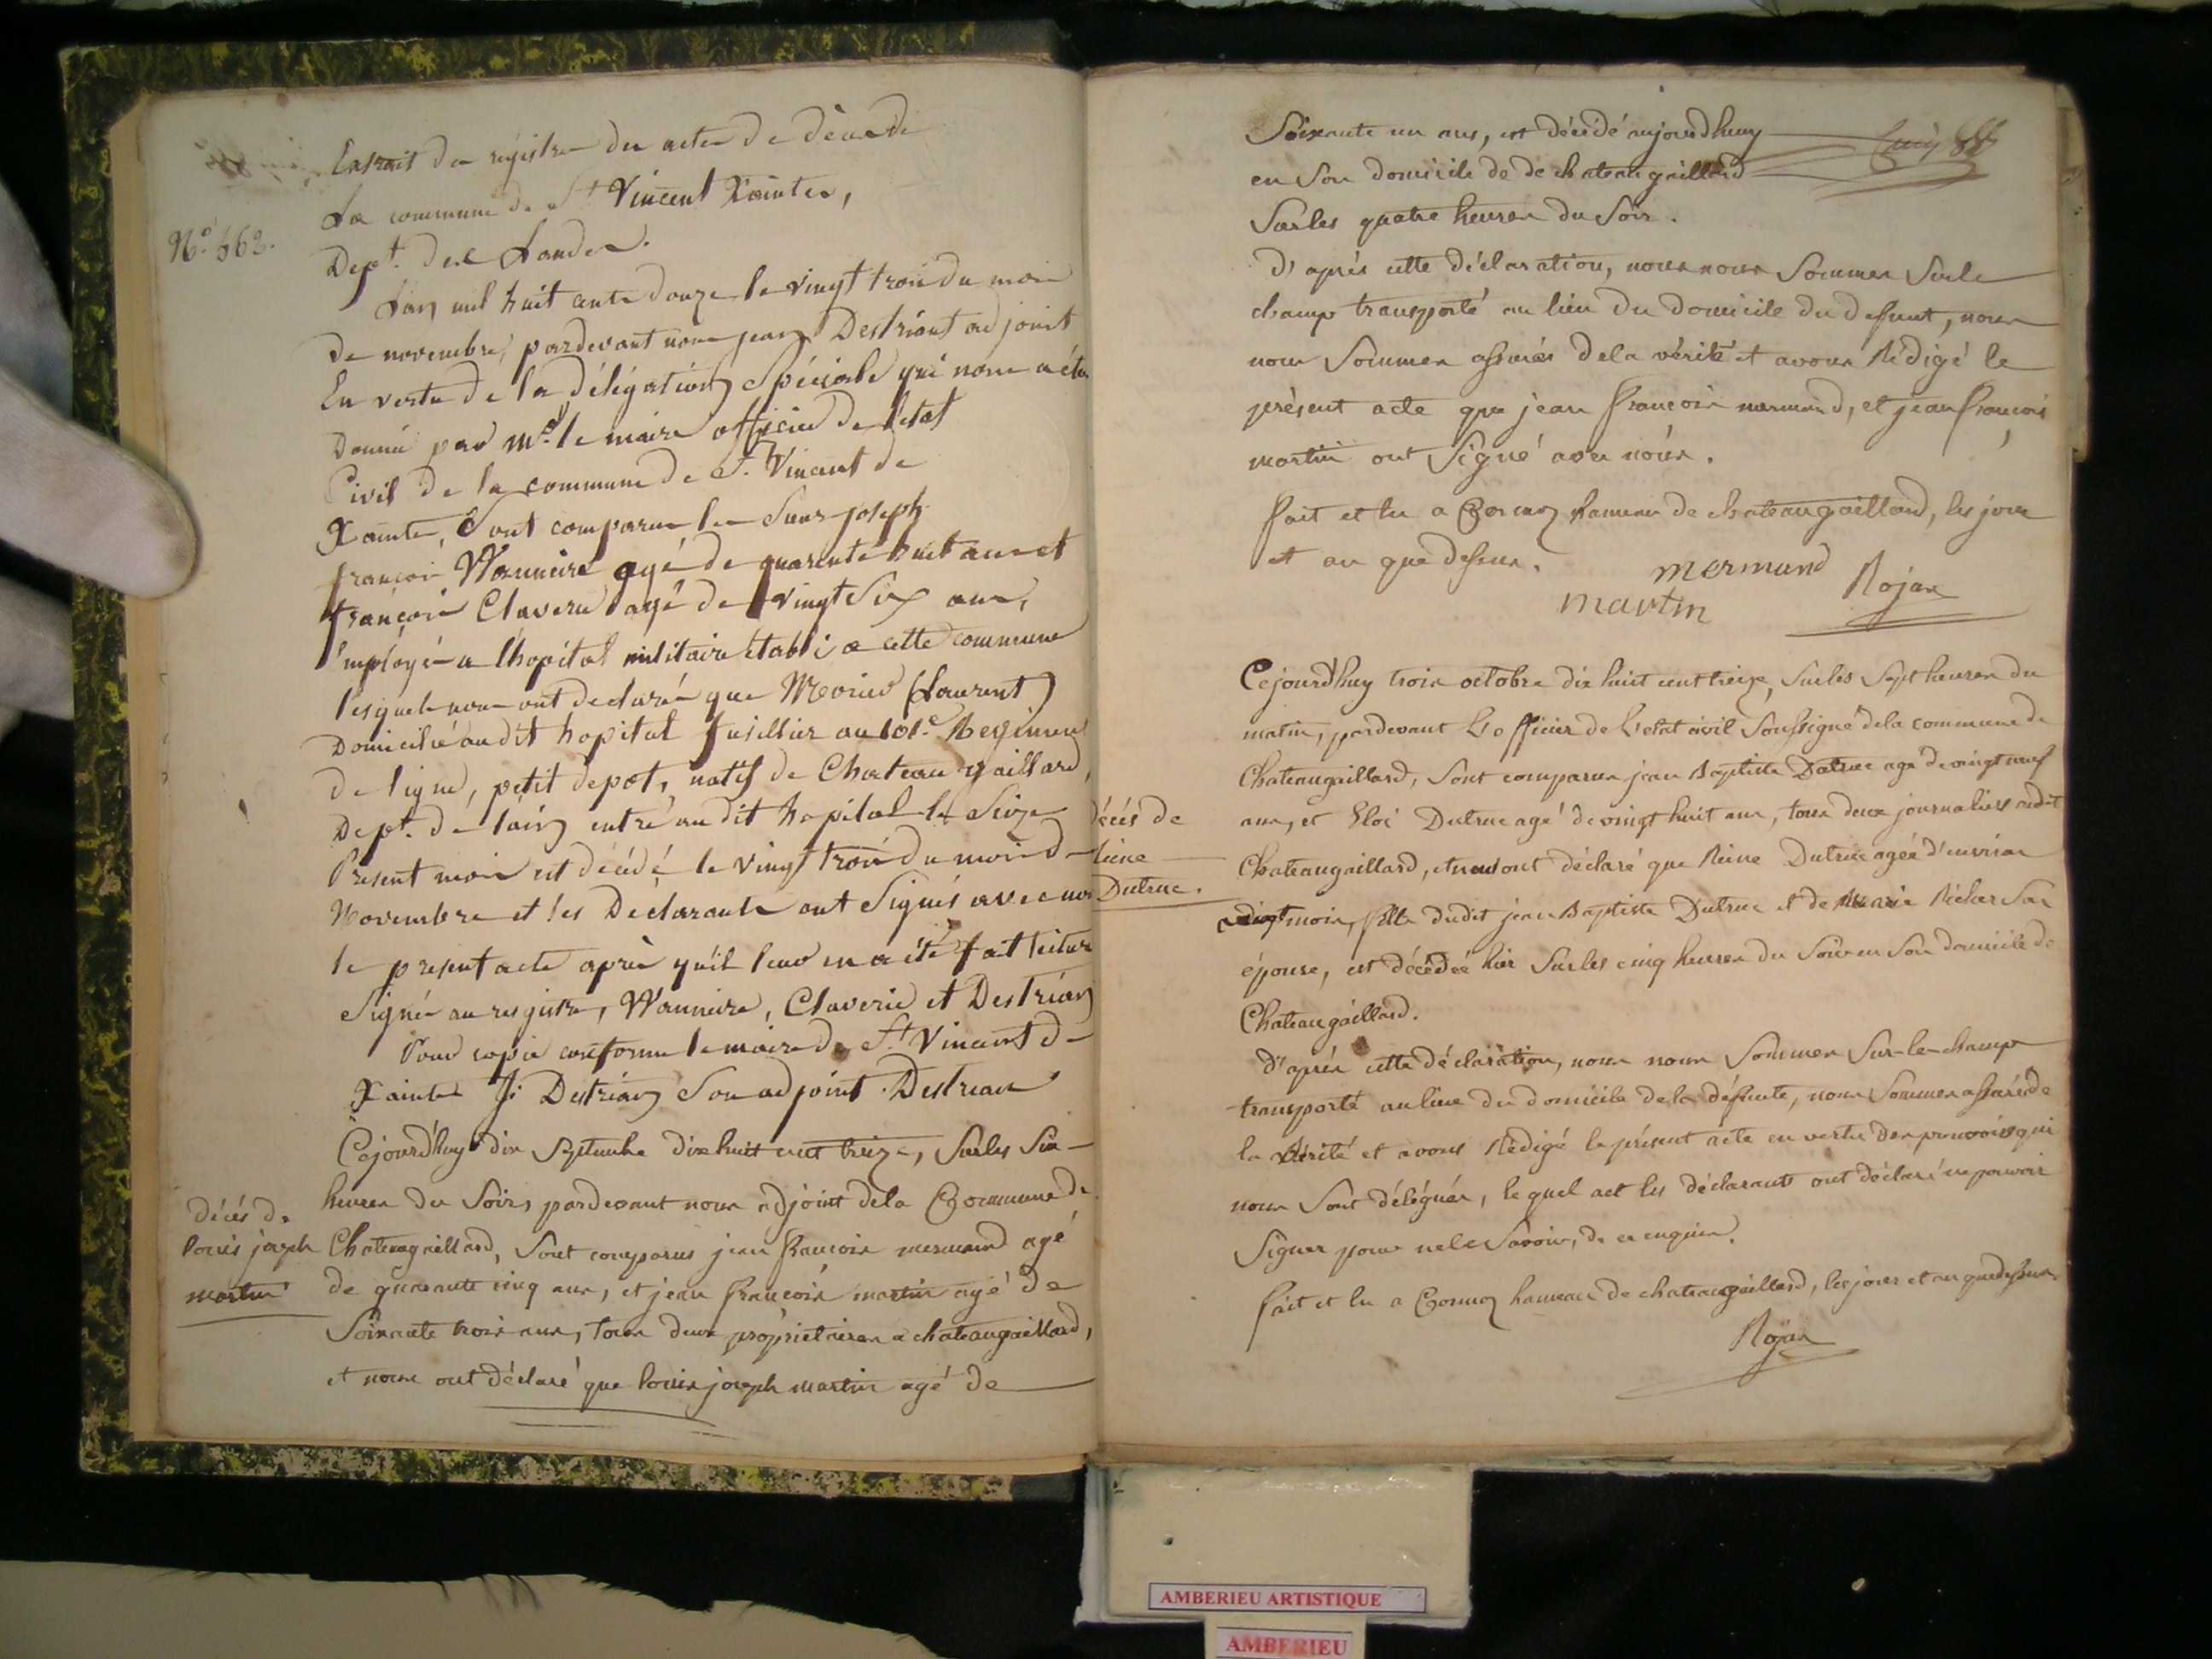 Extrait du régistre des actes de décès de
La commune de St Vincent Xaintes,
Dept. des Landes.
N.o 562.
Lan mil huit cents douze le vingt trois du mois
de novembre, pardevant nous jean Destriant adjoint
En vertu de la délégation Spéciale qui nous a été
Donné par Mr. le maire officier de l'état
Civil de la commune de St. Vincent de
Xainte, Sont comparus les Sieurs joseph
françois Wanneire agé de quarente huit ans et
françois Claverie agé de vingt Six ans,
Employés a lhopital militaire établi a cette commune
lesquels nous ont declaré que Morier (Laurent)
Domicilié audit hopital fusillier au 101.e Regiment
de ligne, petit depot, natif de Chateau gaillard,
Dept. de láin entré audit hopital le Seize
Present mois est décédé le vingt trois du mois de
Novembre et les Declarants ont Signés avec nous
le present acte après quil leur en a été fait lecture
Signé au registre, Wanneire, Claverie et Destrian
Pour copie conforme le maire de St. Vincent de
Xaintes J: Destrian Son adjoint. Destrian
décés de
louis joseph
martin
Cejourdhuy dix Septembre dix huit cent treize, Surles Six
heures du Soir, pardevant nous adjoint dela Commune de
Chateaugaillard, Sont comparus jean francois mermand agé
de quarante cinq ans, et jean francois martin agé de
Soixante trois ans, tous deux propriétaires a chateaugaillard,
et nous ont déclaré que louis joseph martin agé de
Soixante un ans, est décédé aujourdhuy
en Son domicile de de chateaugaillard
Surles quatre heures du Soir.
D'aprés cette déclaration, nous nous Sommes Surle
champ transporté au lieu du domicile du defunt, nous
nous Sommes assurés dela vérité et avons Rédigé le
présent acte que jean francois mermand, et jean françois
martin ont Signé avec nous.
fait et lu a Cormoz hameau de chateaugaillard, les jour
et an que dessus.
mermand
martin
Rojas
décés de
Reine
Dutruc.
Cejourdhuy trois octobre dix huit cent treize, Surles Sept heures du
matin, pardevant L'officier de L'etat civil Soussigné dela commune de
Chateaugaillard, Sont comparus jean Baptiste Dutruc agé de vingt neuf
ans, et Eloi Dutruc agé de vingt huit ans, tous deux journaliers audit
Chateaugaillard, et nous ont déclaré que Reine Dutruc agée d'environ
vingt mois, fille dudit jean Baptiste Dutruc et de Marie Son
épouse, est décédée hier Surles cinq heures du Soir en Son domicile de
Chateaugaillard.
D'aprés cette déclaration, nous nous Sommes Sur-le-champ
transporté aulieu du domicile dela défunte, nous Sommes assurés de
la vérité et avons Rédigé le présent acte en vertu des pouvoirs qui
nous Sont délégués, lequel act les déclarants ont déclaré ne pouvoir
Signer pour nele Savoir, de ce enquis.
fait et lu a Cormoz hameau de chateaugaillard, les jours et an que dessus
Rojas
AMBERIEU ARTISTIQUE
AMBERIEU